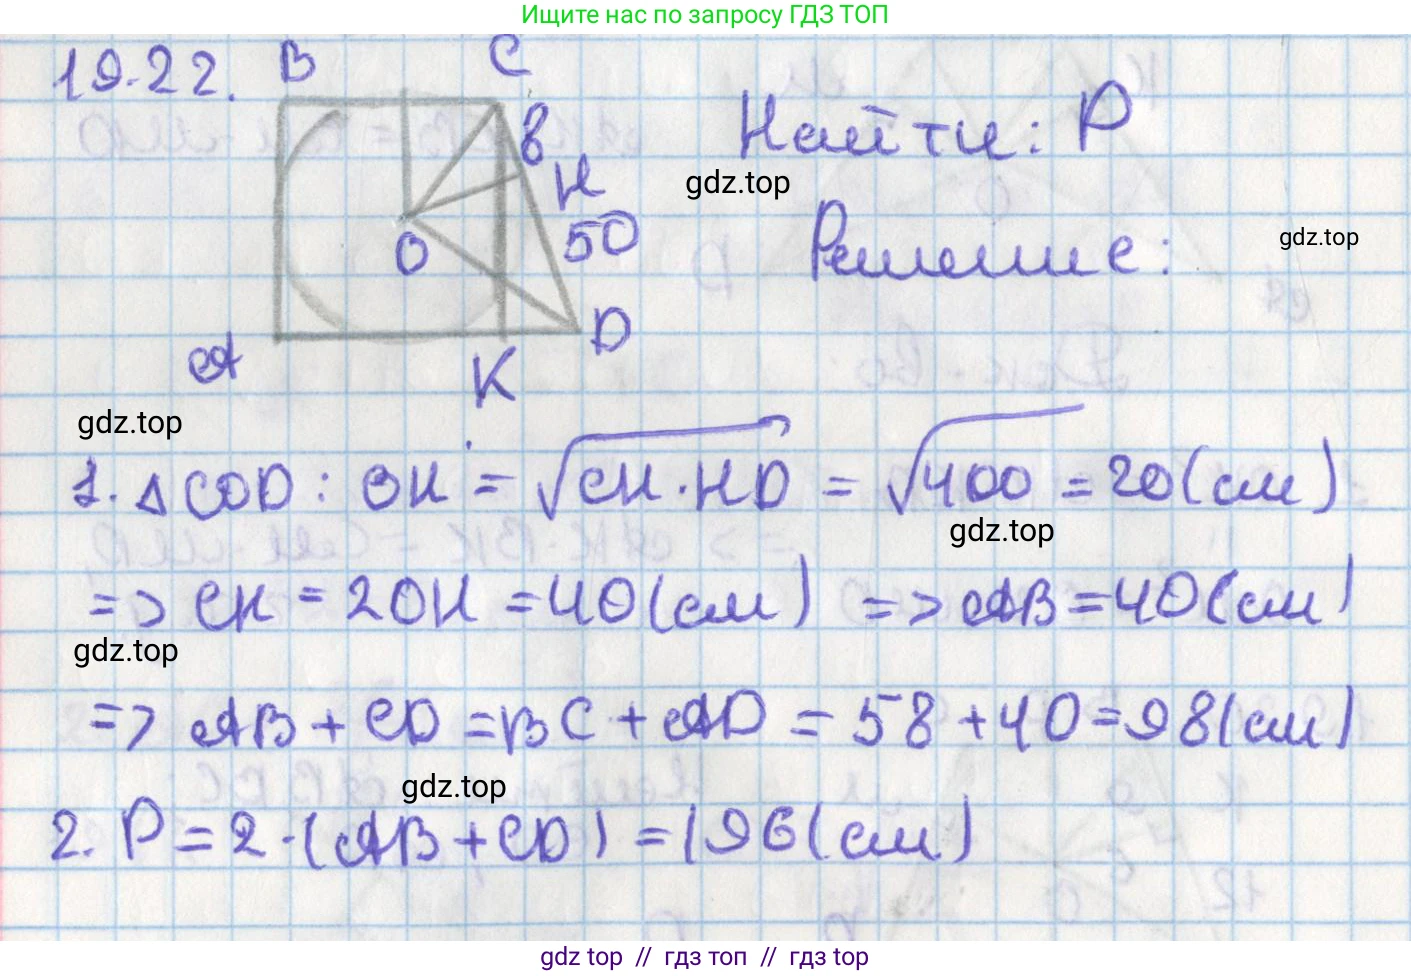 Ищите нас по запросу ГДЗ ТОП
19.22.
B
C
8
H
50
O
A
K
D
Найти: P
gdz.top
gdz.top
Решение:
gdz.top
1. △COD: OH = √CH·HD = √400 = 20(см)
gdz.top
=> CK = 2OH = 40(см) => AB = 40(см)
gdz.top
=> AB + CD = BC + AD = 58 + 40 = 98(см)
gdz.top
2. P = 2·(AB + CD) = 196(см)
gdz top // гдз топ // гдз top